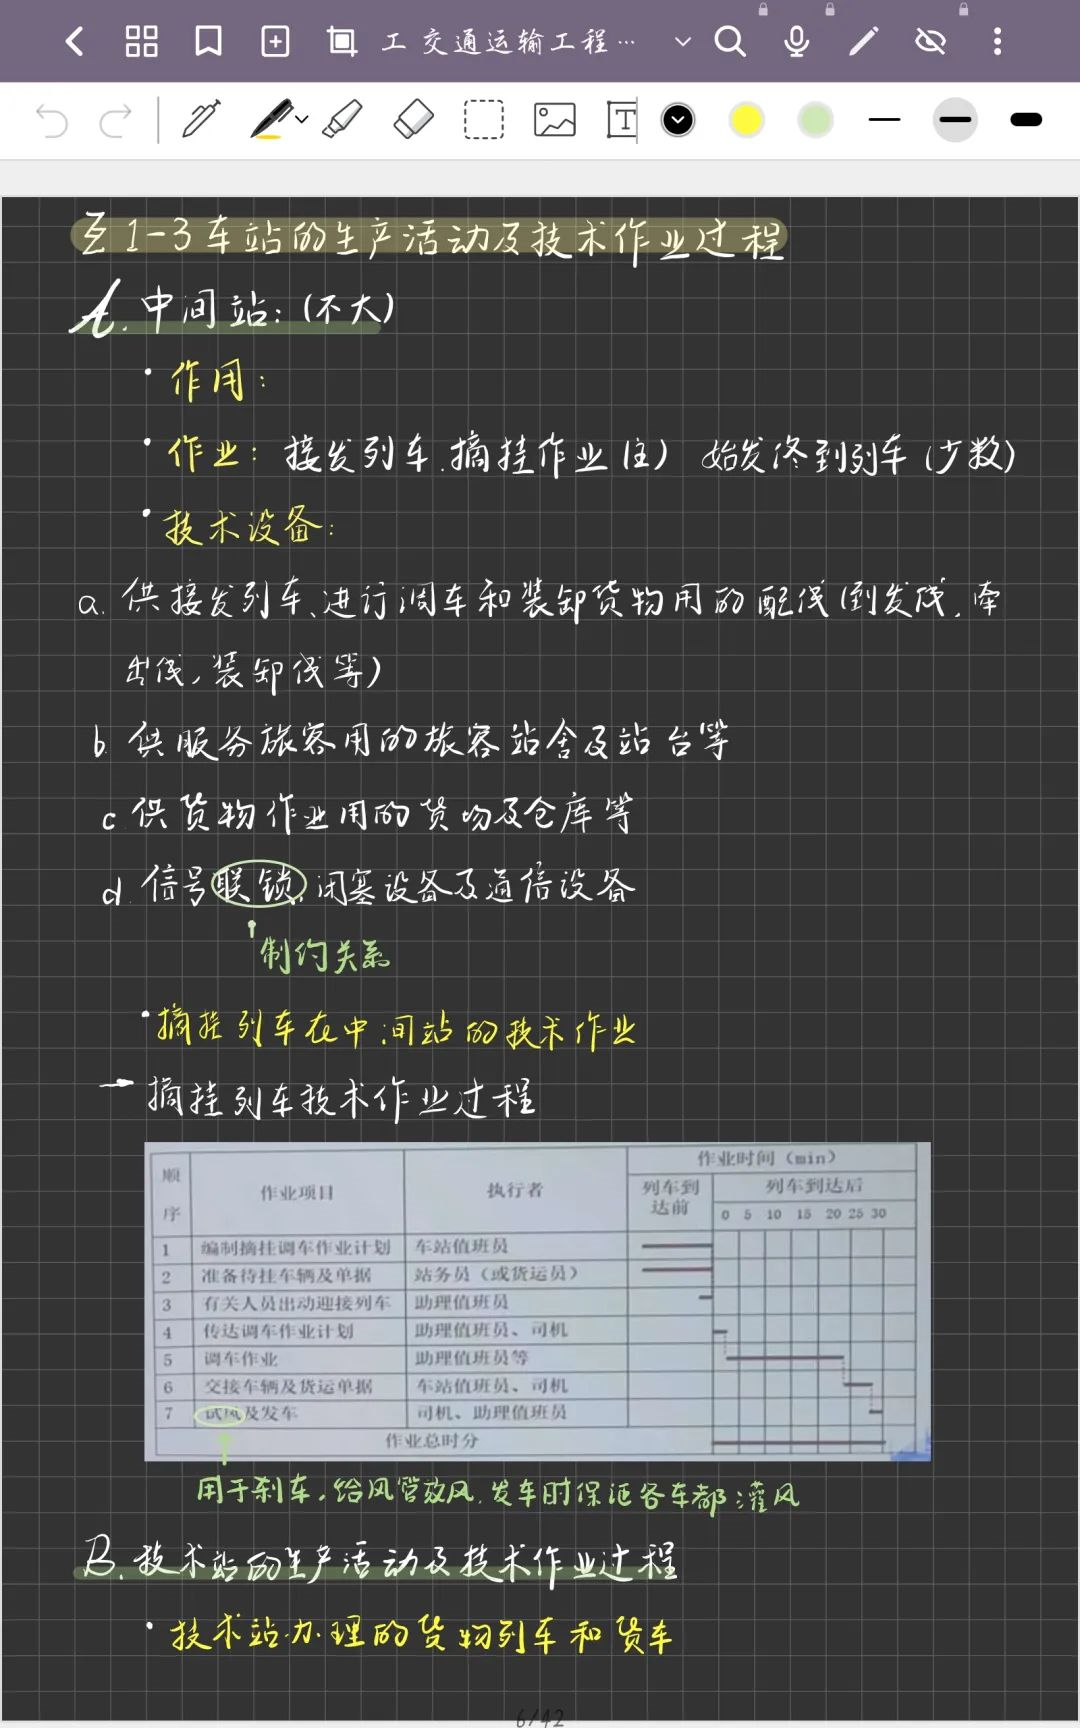 工 交通运输工程…
1-3 车站的生产活动及技术作业过程
A. 中间站：(不大)
· 作用：
· 作业：接发列车、摘挂作业(主) 始发终到列车(少数)
· 技术设备：
a. 供接发列车、进行调车和装卸货物用的配线(到发线，牵
出线，装卸线等)
b. 供服务旅客用的旅客站舍及站台等
c. 供货物作业用的货物及仓库等
d. 信号联锁、闭塞设备及通信设备
制约关系
· 摘挂列车在中间站的技术作业
→ 摘挂列车技术作业过程
顺序 作业项目 执行者 作业时间（min）
列车到达前 列车到达后
0 5 10 15 20 25 30
1 编制摘挂调车作业计划 车站值班员
2 准备待挂车辆及单据 站务员（或货运员）
3 有关人员出动迎接列车 助理值班员
4 传达调车作业计划 助理值班员、司机
5 调车作业 助理值班员等
6 交接车辆及货运单据 车站值班员、司机
7 试风及发车 司机、助理值班员
作业总时分
用于刹车，给风管放风，发车时保证各车都灌风
B. 技术站的生产活动及技术作业过程
· 技术站办理的货物列车和货车
6/42